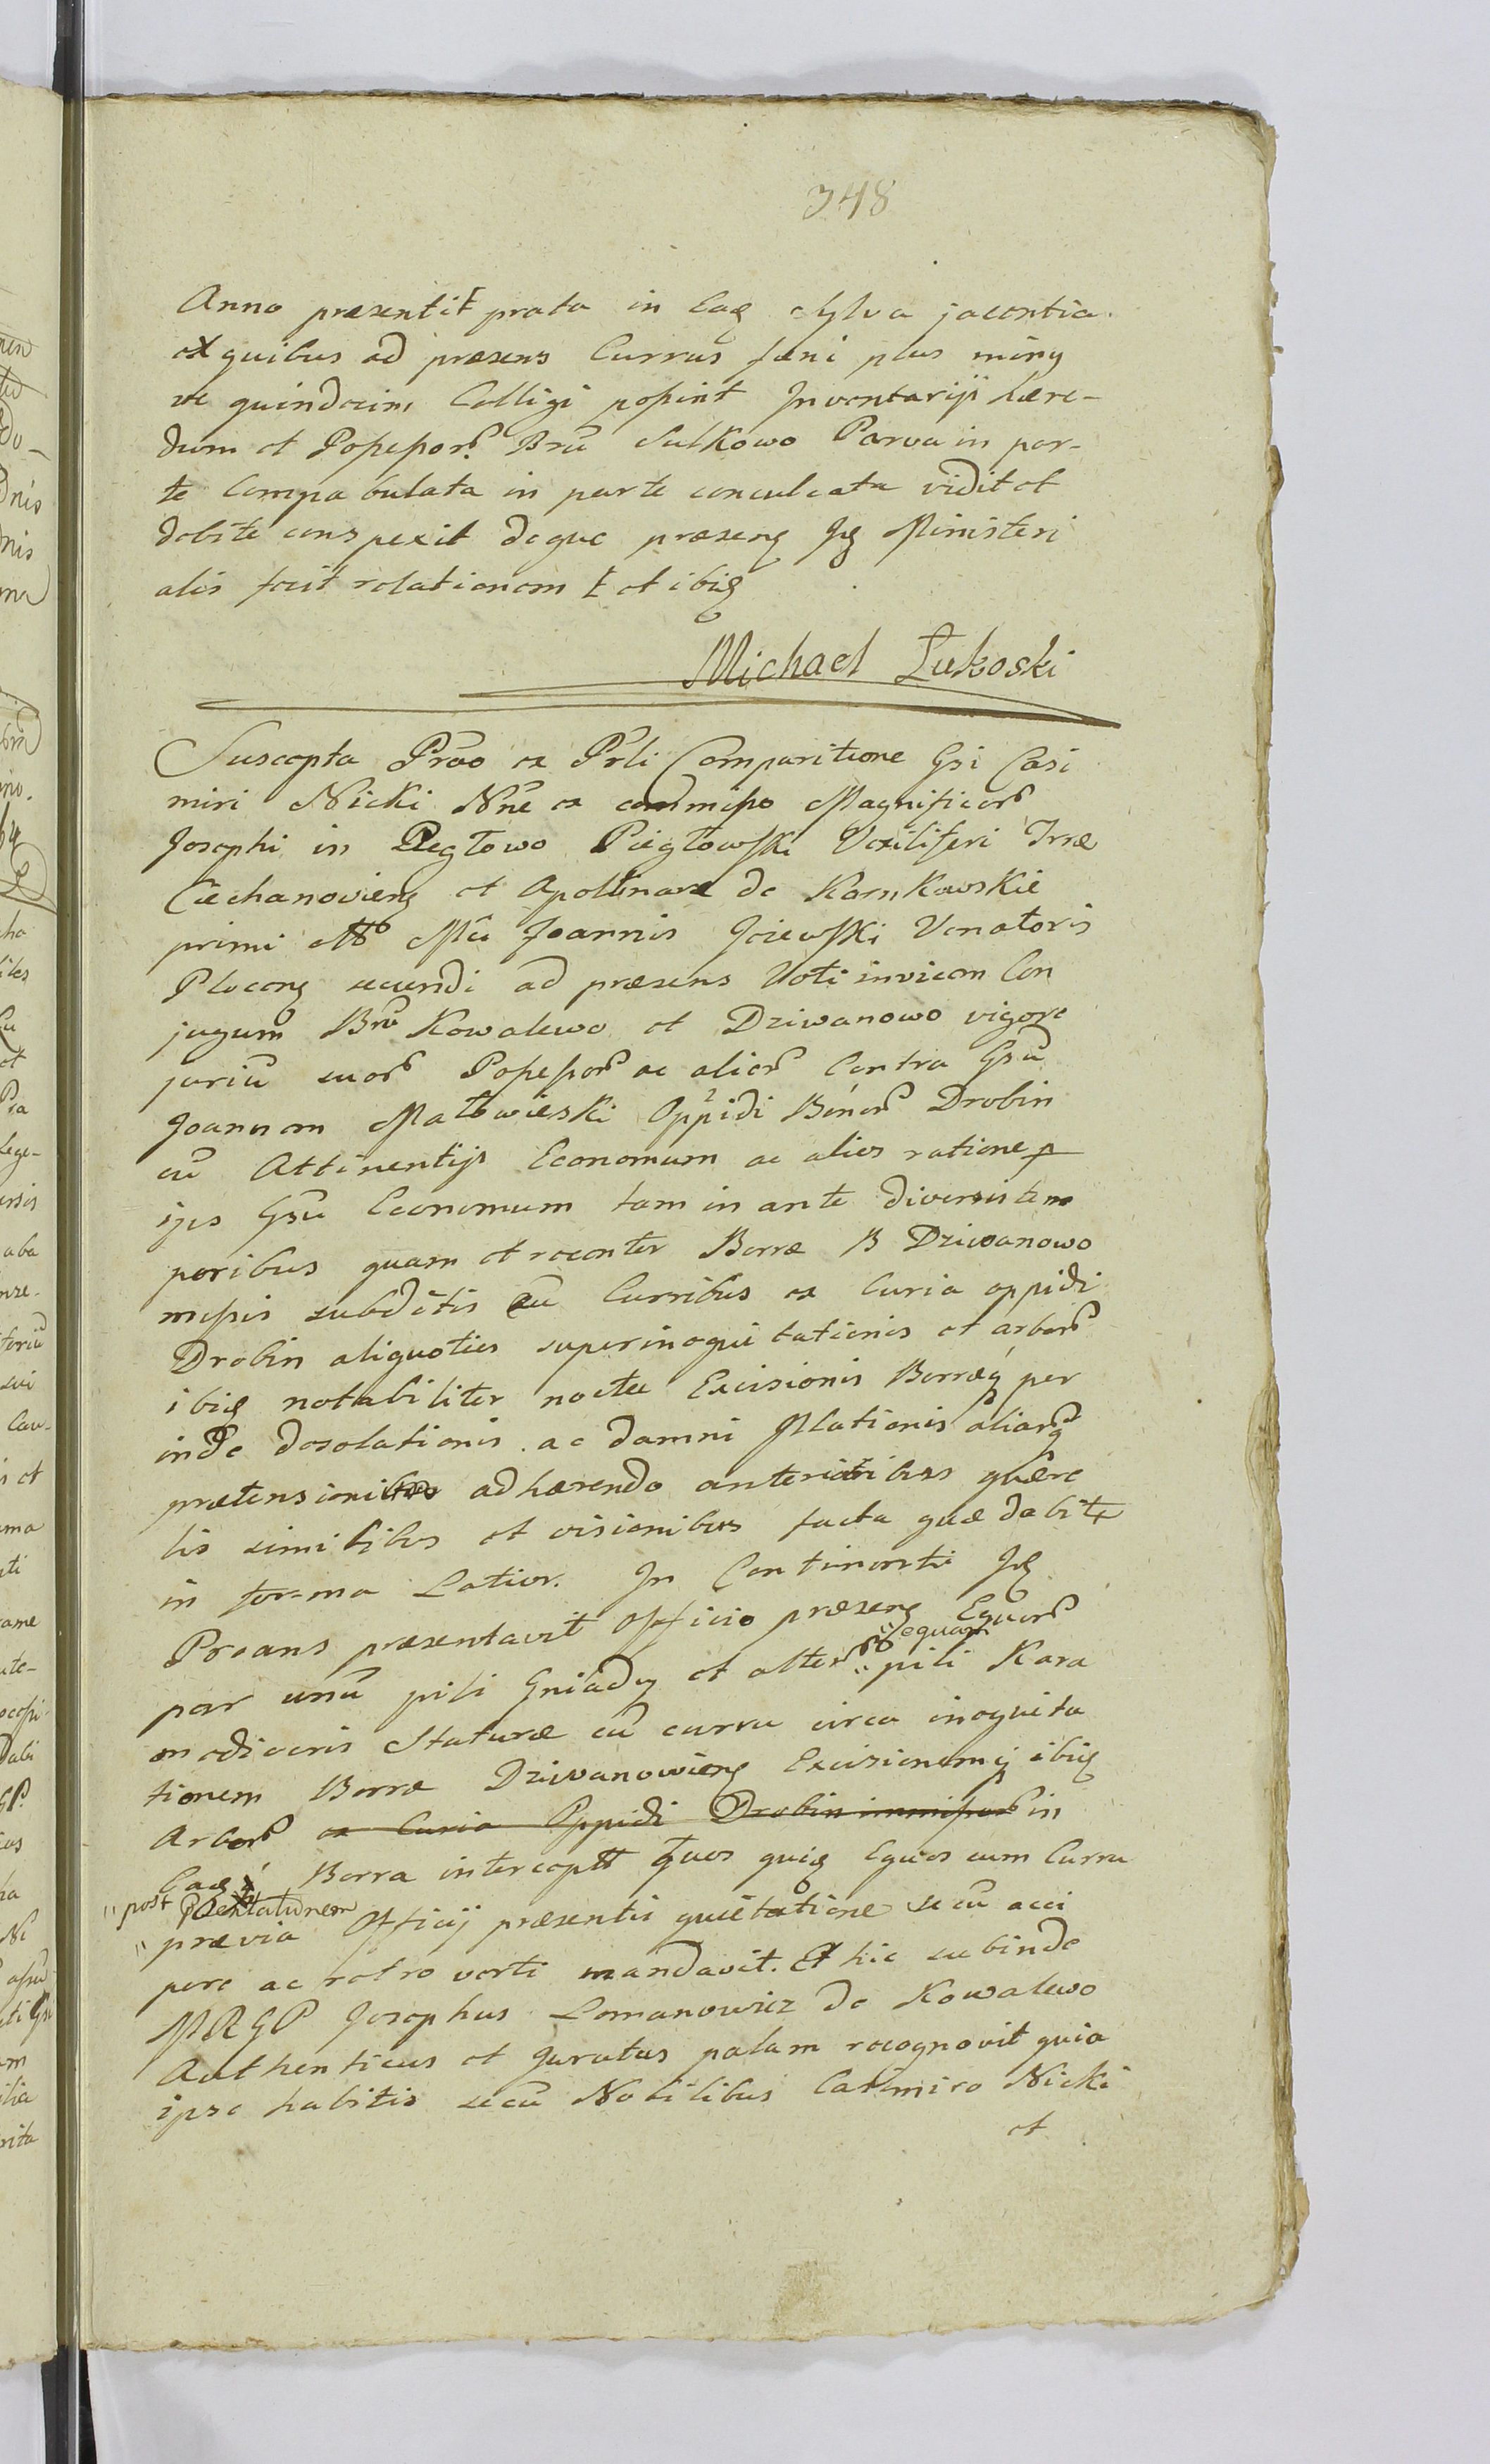 348
Anno præsenti prata in Eaq Sylva jacentia
ex quibus ad præsens Currus fæni plus minq
ve quindecim Colligi possint Inventarijs hære-
dum et Possessor Brū Sulkowo Parva in par-
te Compabulata in parte conculcata vidit et
debite conspexit deque præsens Iq Ministeri
alis fecit relationem et ibiq
Michael Łukoski
Suscepta Prāo ex Prli Comparitione Gsi Casi
miri Nicki Nne ex commisso Magnificor
Josephi in Pęgłowo Piegłowski Vexiliferi Trræ
Ciechanovienq et Apolinaræ de Karnkowskie
primi Mci Joannis Jeziewski Venatoris
Plocenq secundi ad præsens Voti invicem Con
jugum Brū Kowalewo et Dziwanowo vigore
juriū suor Possessor ac alior Contra Gsū
Joannem Małowieski Oppidi Bonor Drobin
cū Attinentijs Economum ac alios ratione p
ips Gsū Economum tam in ante diversis tem
poribus quam et recenter Borræ B Dziwanowo
missis subditis cū Curribus ex Curia oppidi
Drobin aliquoties superinequitationis et arbor
ibiq notabiliter noctu Excisionis Borræq per
inde desolationis ac damni Illationis aliarq
prætensionibus adhærendo anterioribus quære
lis similibus et visionibus facta quæ dabitr
in forma Latior. In Continenti Iq
Proans præsentavit Officio præsenq Equor
par unū pili Gniady et alter "equar" pili Kara
mediocris Staturæ cū curru circa inequita
tionem Borræ Dziwanowienq Excisionemq ibiq
Arbor ex Curia Oppidi Drobin immissor in
Eaq Borra intercept quos quiq Equos cum Curru
"post Pæntatūnem
"prævia Officij præsentis quietatione secū acci
pere ac retro verti mandavit. Et hic subinde
MRGP Josephus Lomanowicz de Kowalewo
Authenticus et Juratus palam recognovit quia
ipse habitis secū Nobilibus Casimiro Nicki
et